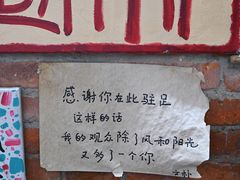 感谢你在此驻足
这样的话
我的观众除了风和阳光
又多了一个你